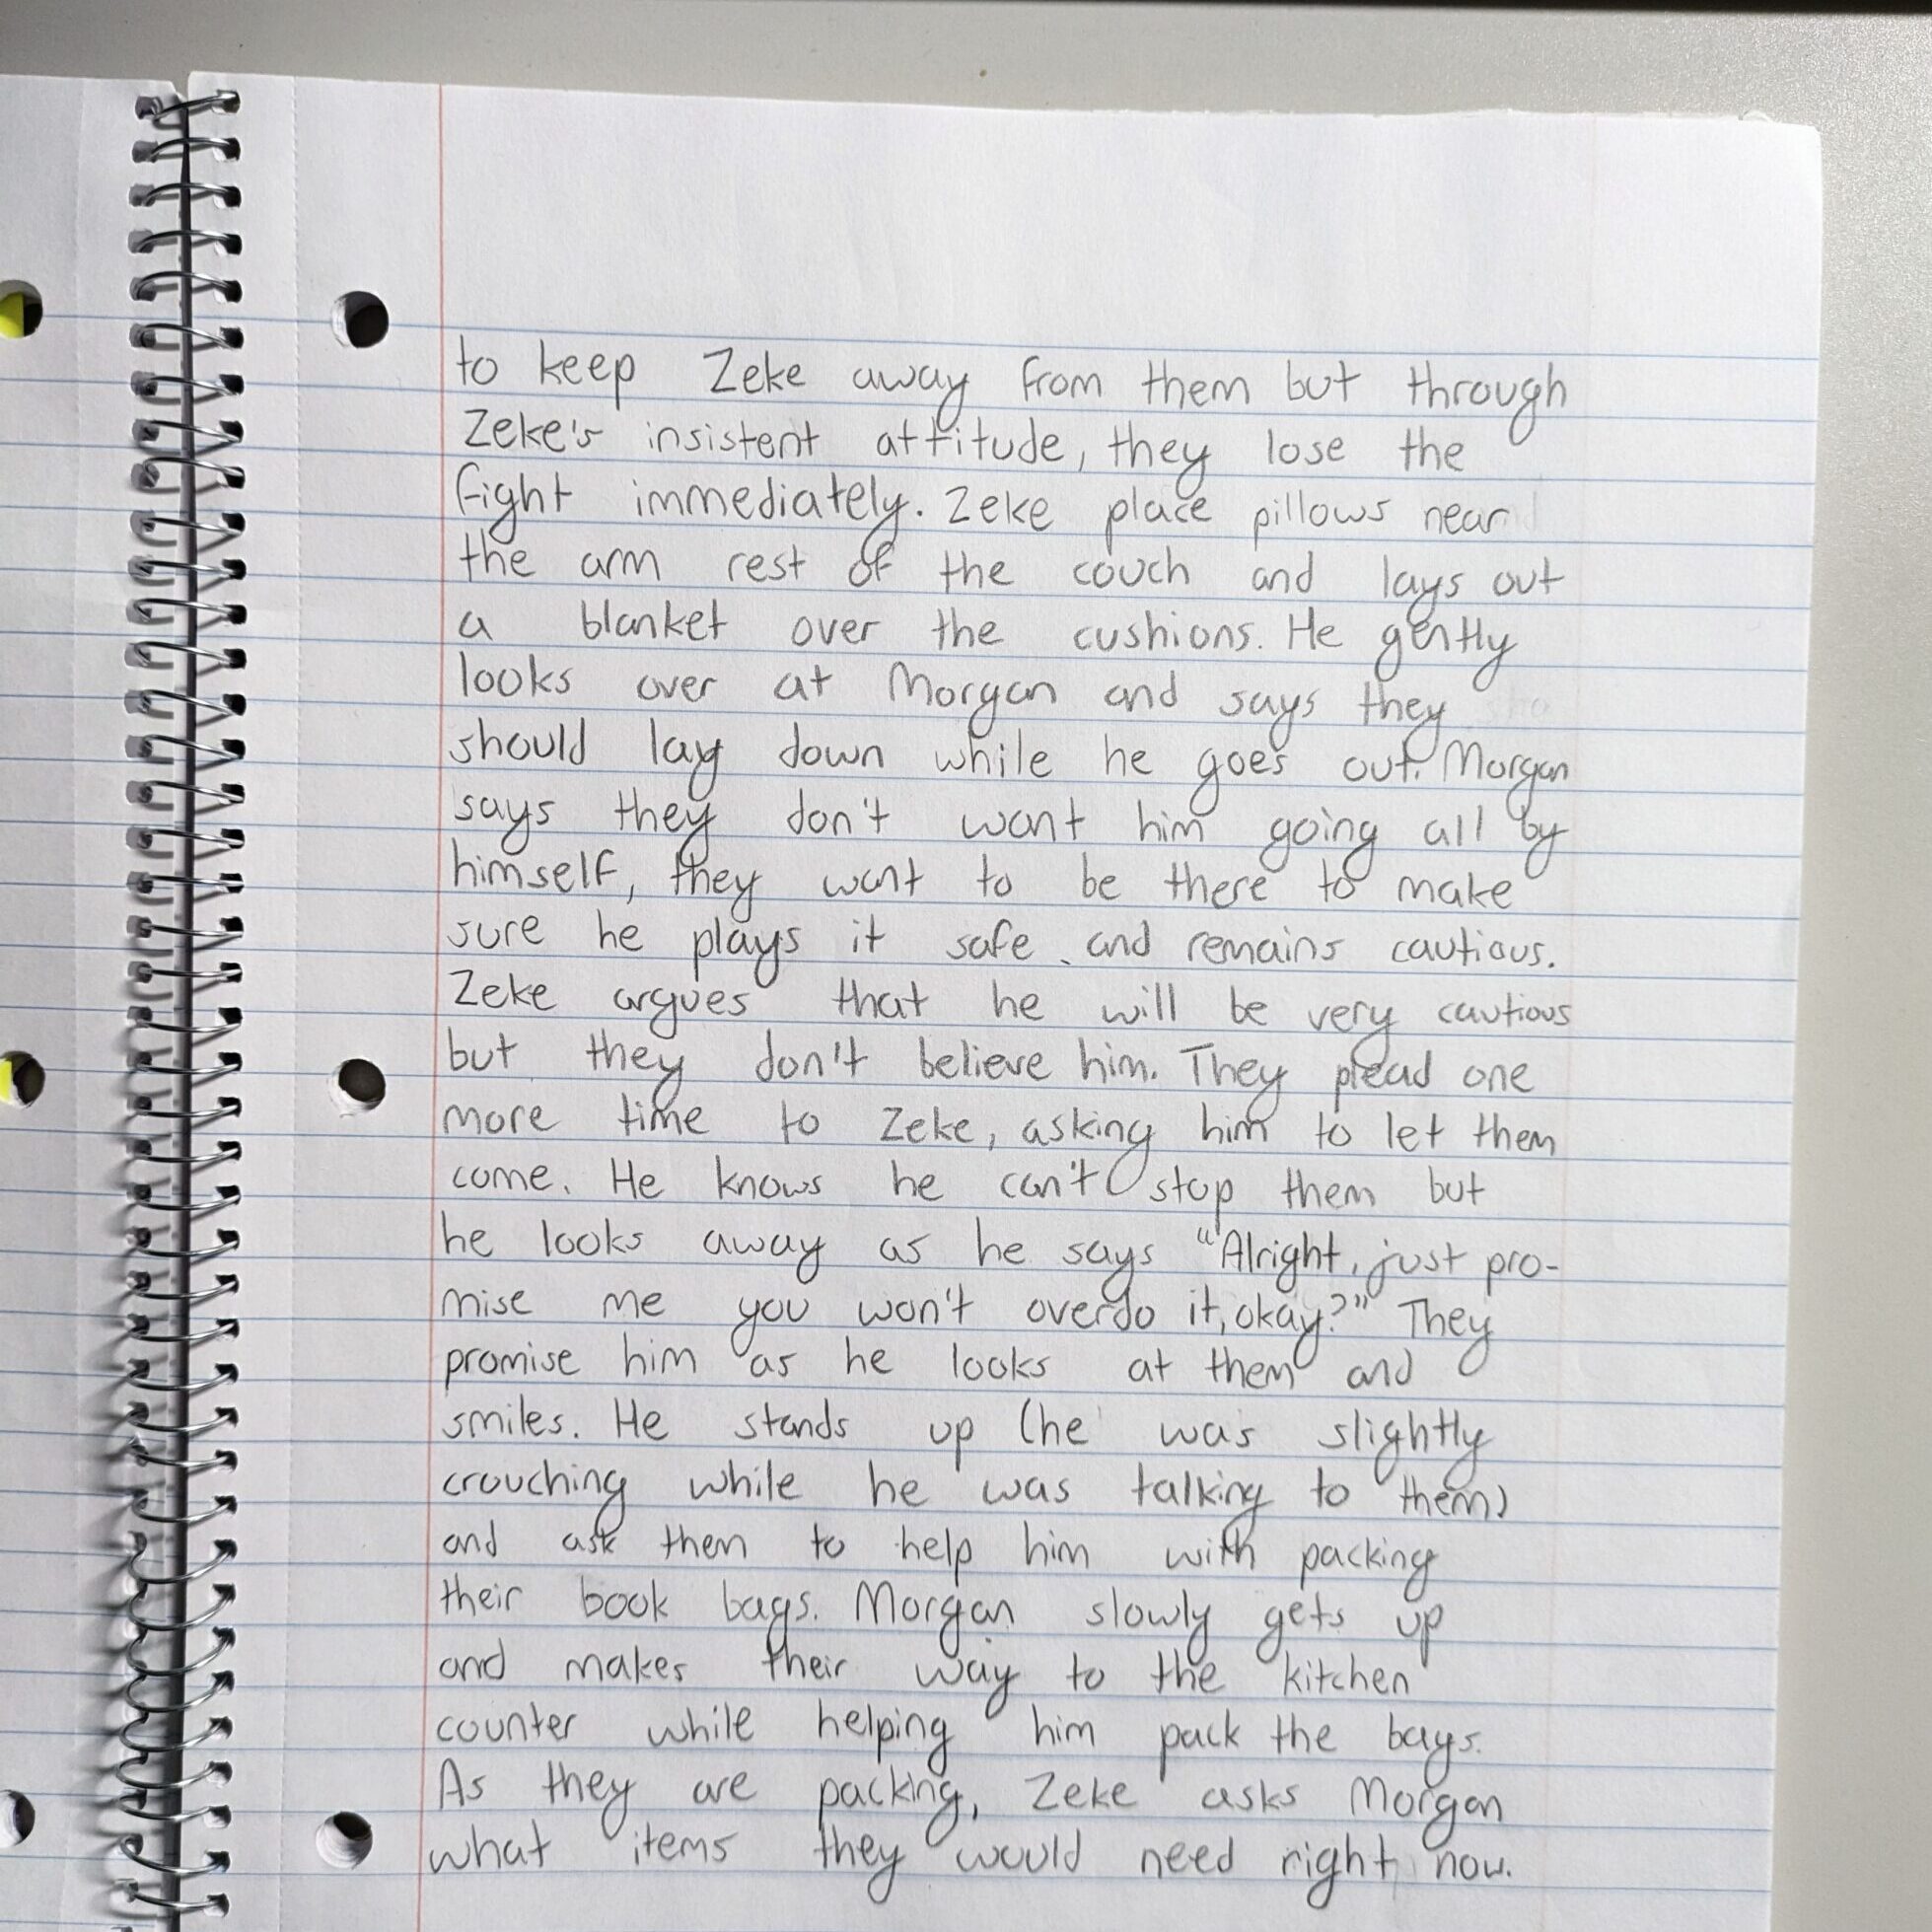 to keep Zeke away from them but through
Zeke's insistent attitude, they lose the
fight immediately. Zeke place pillows near
the arm rest of the couch and lays out
a blanket over the cushions. He gently
looks over at Morgan and says they
should lay down while he goes out. Morgan
says they don't want him going all by
himself, they want to be there to make
sure he plays it safe and remains cautious.
Zeke argues that he will be very cautious
but they don't believe him. They plead one
more time to Zeke, asking him to let them
come. He knows he can't stop them but
he looks away as he says "Alright, just pro-
mise me you won't overdo it, okay?" They
promise him as he looks at them and
smiles. He stands up (he was slightly
crouching while he was talking to them)
and ask them to help him with packing
their book bags. Morgan slowly gets up
and makes their way to the kitchen
counter while helping him pack the bags.
As they are packing, Zeke asks Morgan
what items they would need right now.